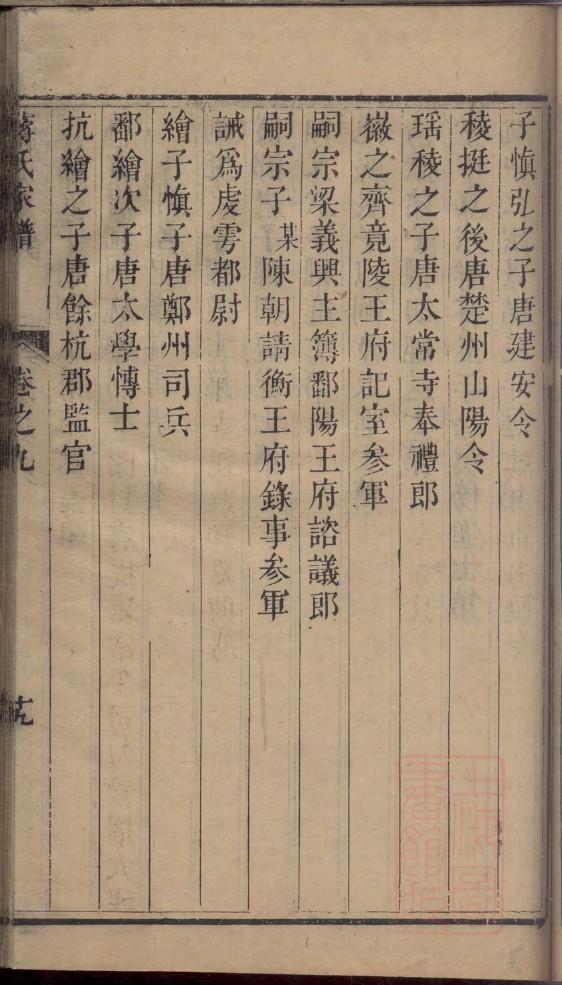 子慎弘之子唐建安令
稜挺之後唐楚州山陽令
瑶稜之子唐太常寺奉禮郎
嶶之齊竟陵王府記室參軍
嗣宗梁義興主簿鄱陽王府諮議郎
嗣宗子某陳朝請衡王府錄事參軍
誡爲虔雩都尉
繪子慎子唐鄭州司兵
鄱繪次子唐太學愽士
抗繪之子唐餘杭郡監官
蔣氏家譜 卷之九
上海圖書館